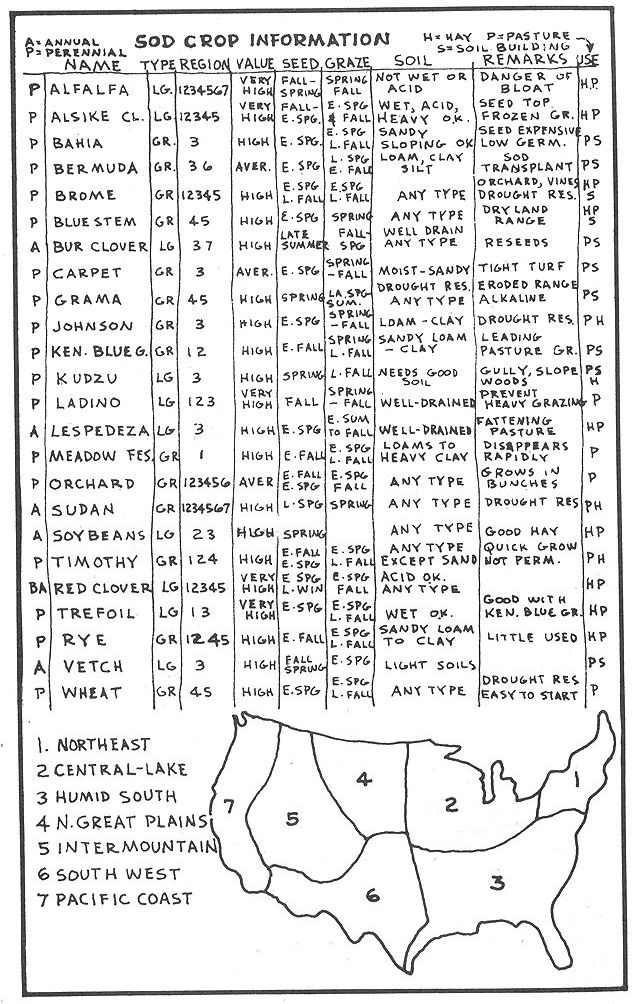 A=ANNUAL
P=PERENNIAL
SOD CROP INFORMATION
H=HAY P=PASTURE
S=SOIL BUILDING
NAME TYPE REGION VALUE SEED GRAZE SOIL REMARKS USE
P ALFALFA LG. 1234567 VERY HIGH FALL-SPRING SPRING FALL NOT WET OR ACID DANGER OF BLOAT H.P.
P ALSIKE CL. LG 12345 VERY HIGH FALL-E.SPG. E.SPG & FALL WET, ACID, HEAVY O.K. SEED TOP FROZEN GR. HP
P BAHIA GR. 3 HIGH E.SPG. E.SPG L.FALL SANDY SLOPING OK SEED EXPENSIVE LOW GERM. PS
P BERMUDA GR. 36 AVER. E.SPG L.SPG E.FALL LOAM, CLAY SILT SOD TRANSPLANT PS
P BROME GR 12345 HIGH E.SPG L.FALL E.SPG L.FALL ANY TYPE ORCHARD, VINES DROUGHT RES. HP S
P BLUE STEM GR 45 HIGH E.SPG SPRING ANY TYPE DRY LAND RANGE HP S
A BUR CLOVER LG 37 HIGH LATE SUMMER FALL-SPG WELL DRAIN ANY TYPE RESEEDS PS
P CARPET GR 3 AVER. E.SPG SPRING-FALL MOIST-SANDY TIGHT TURF PS
P GRAMA GR 45 HIGH SPRING LA.SPG-SUM. DROUGHT RES. ANY TYPE ERODED RANGE ALKALINE PS
P JOHNSON GR 3 HIGH E.SPG SPRING-FALL LOAM-CLAY DROUGHT RES. PH
P KEN. BLUE G. GR 12 HIGH E.FALL SPRING L.FALL SANDY LOAM-CLAY LEADING PASTURE GR. PS
P KUDZU LG 3 HIGH SPRING L.FALL NEEDS GOOD SOIL GULLY, SLOPE WOODS PS H
P LADINO LG 123 VERY HIGH FALL SPRING-FALL WELL-DRAINED PREVENT HEAVY GRAZING P
A LESPEDEZA LG 3 HIGH E.SPG E.SUM TO FALL WELL-DRAINED FATTENING PASTURE HP
P MEADOW FES. GR 1 HIGH E.FALL E.SPG L.FALL LOAMS TO HEAVY CLAY DISAPPEARS RAPIDLY P
P ORCHARD GR 123456 AVER E.FALL E.SPG E.SPG FALL ANY TYPE GROWS IN BUNCHES P
A SUDAN GR 1234567 HIGH L.SPG SPRING ANY TYPE DROUGHT RES PH
A SOYBEANS LG 23 HIGH SPRING ANY TYPE GOOD HAY HP
P TIMOTHY GR 124 HIGH E.FALL E.SPG E.SPG L.FALL ANY TYPE EXCEPT SAND QUICK GROW NOT PERM. PH
BA RED CLOVER LG 12345 VERY HIGH E SPG L.WIN E.SPG FALL ACID OK. ANY TYPE HP
P TREFOIL LG 13 VERY HIGH E.SPG E.SPG L.FALL WET OK. GOOD WITH KEN. BLUE GR. HP
P RYE GR 1245 HIGH E.FALL E SPG L.FALL SANDY LOAM TO CLAY LITTLE USED HP
A VETCH LG 3 HIGH FALL SPRING E.SPG LIGHT SOILS PS
P WHEAT GR 45 HIGH E.SPG E.SPG L.FALL ANY TYPE DROUGHT RES EASY TO START P
1. NORTHEAST
2 CENTRAL-LAKE
3 HUMID SOUTH
4 N.GREAT PLAINS
5 INTERMOUNTAIN
6 SOUTH WEST
7 PACIFIC COAST
1
4
2
7
5
3
6